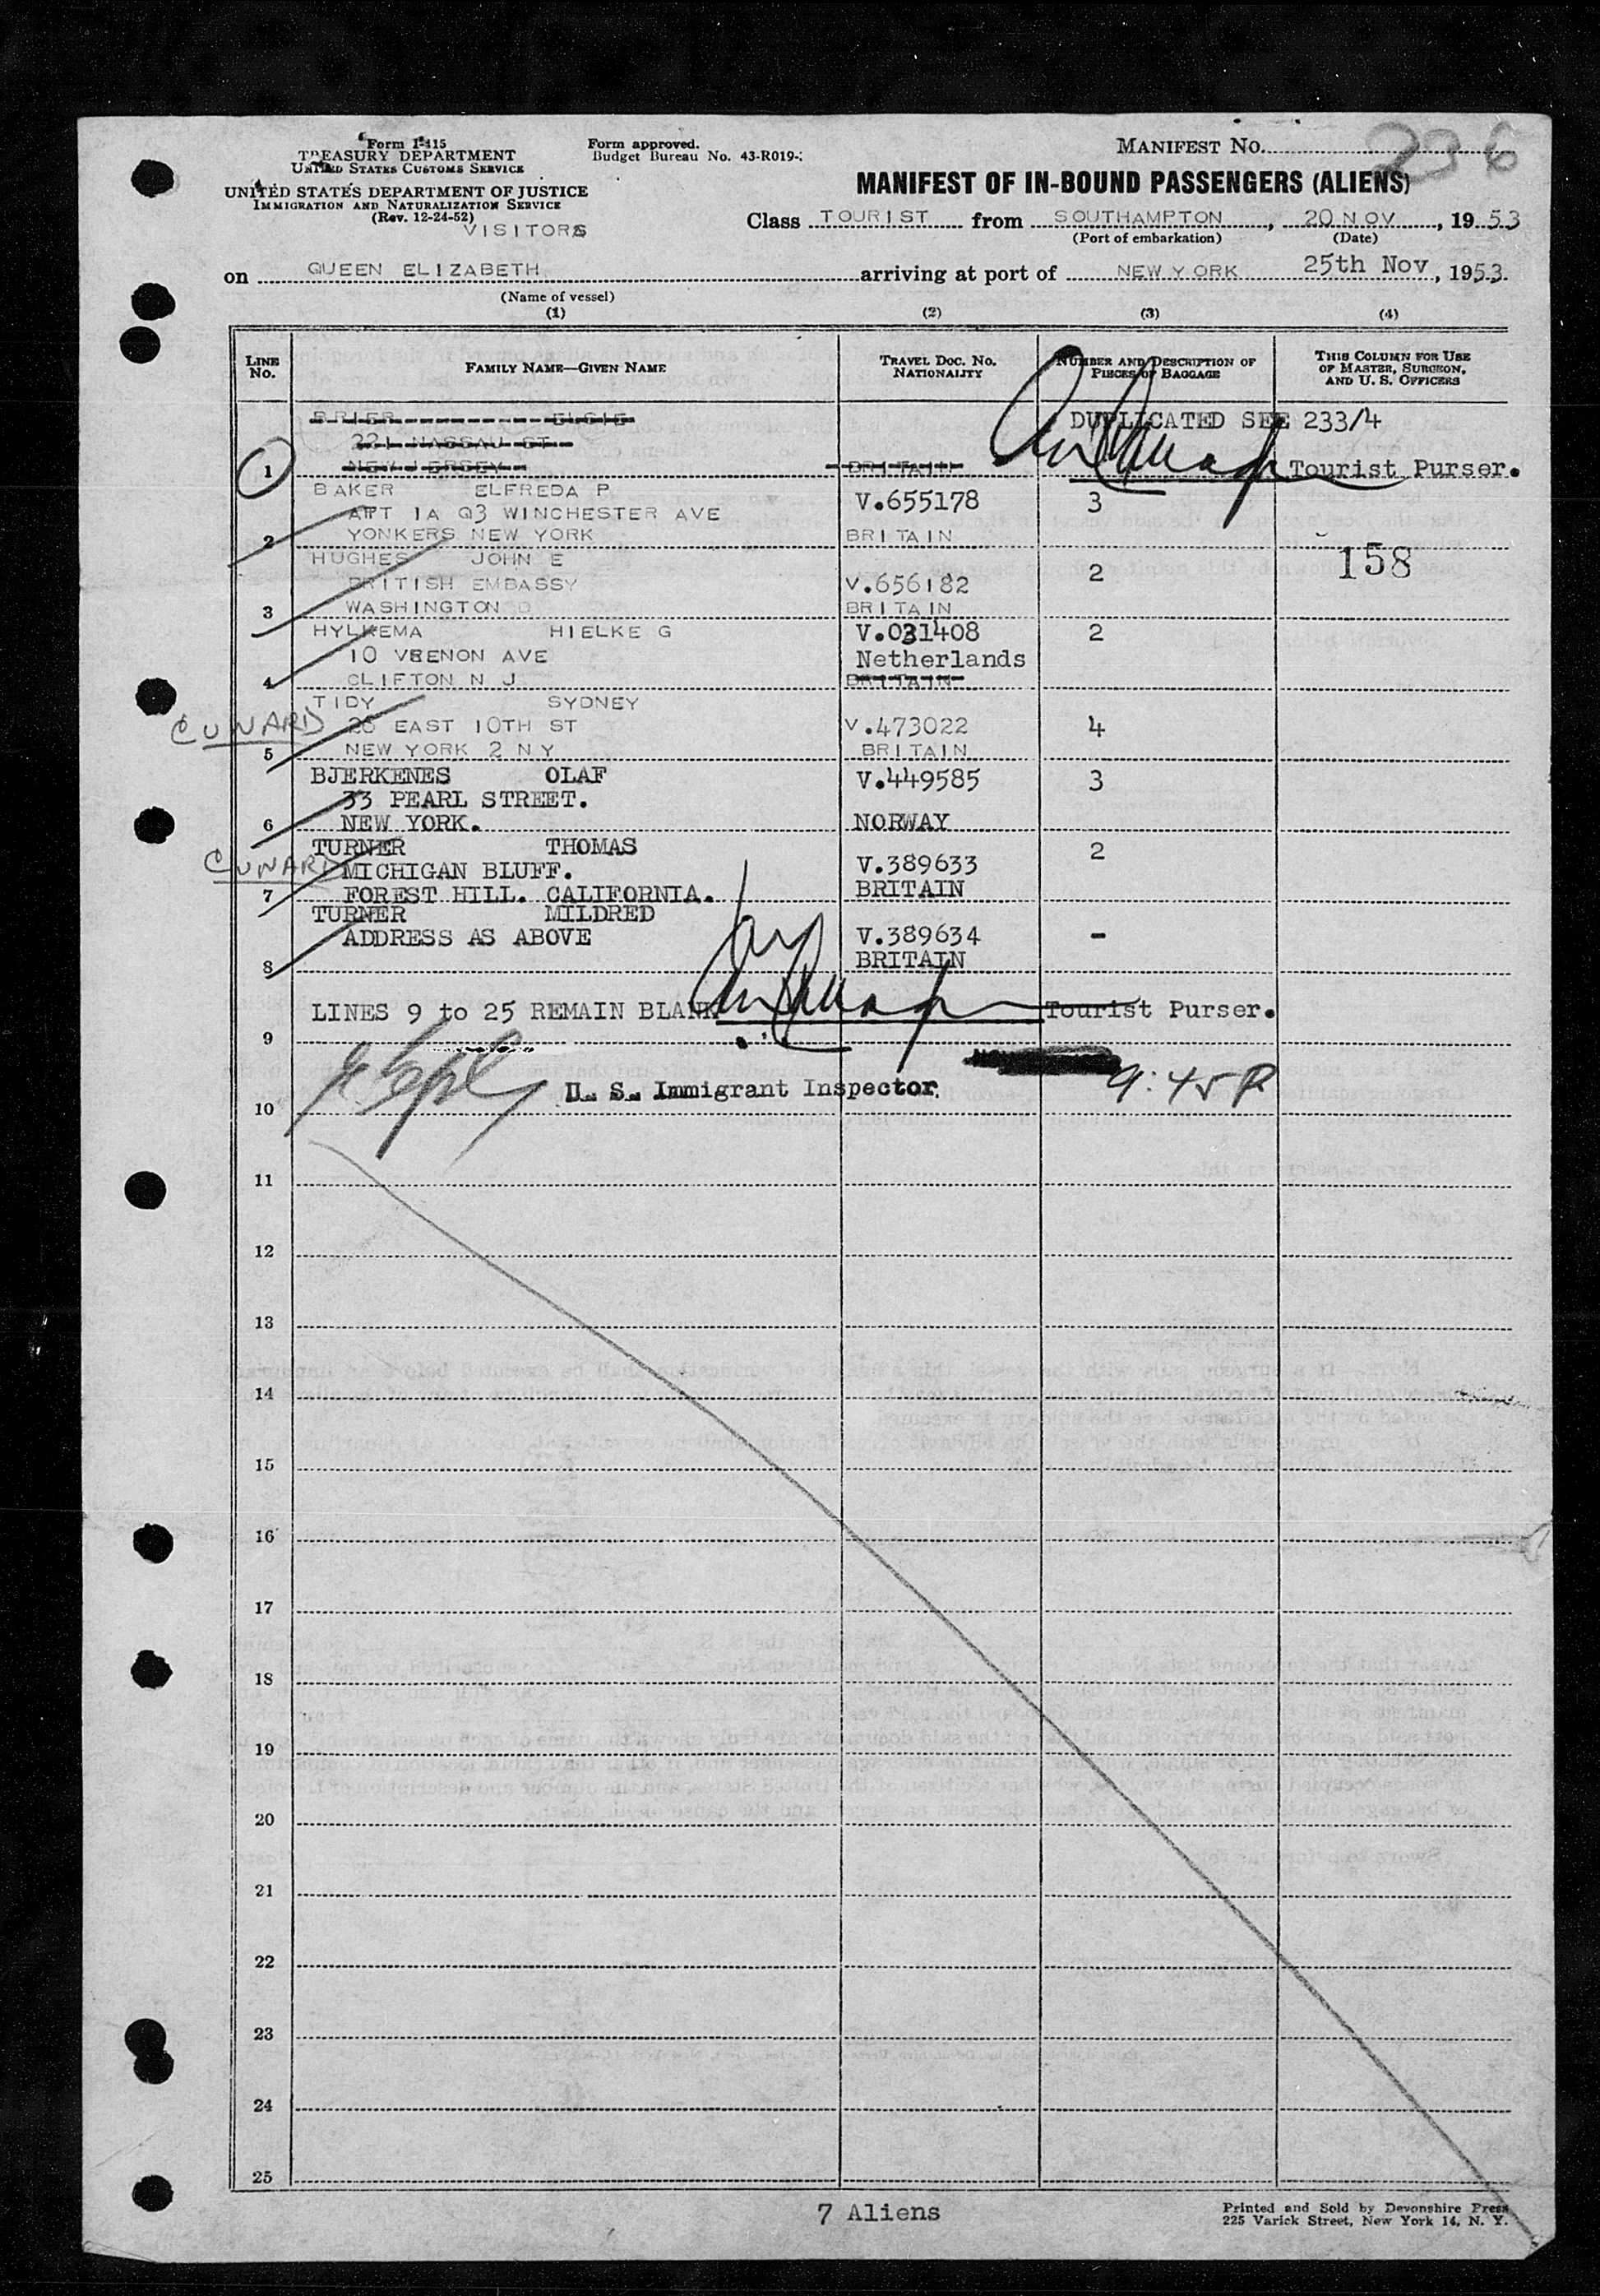 Form I-415
TREASURY DEPARTMENT
UNITED STATES CUSTOMS SERVICE
UNITED STATES DEPARTMENT OF JUSTICE
IMMIGRATION AND NATURALIZATION SERVICE
(Rev. 12-24-52)
VISITORS
Form approved.
Budget Bureau No. 43-R019-
MANIFEST No. 236
MANIFEST OF IN-BOUND PASSENGERS (ALIENS)
Class TOURIST from SOUTHAMPTON, 20 NOV, 1953
(Port of embarkation) (Date)
on QUEEN ELIZABETH arriving at port of NEW YORK 25th Nov, 1953
(Name of vessel)
(1) (2) (3) (4)
LINE No. FAMILY NAME—GIVEN NAME TRAVEL DOC. NO. NATIONALITY NUMBER AND DESCRIPTION OF PIECES OF BAGGAGE THIS COLUMN FOR USE OF MASTER, SURGEON, AND U. S. OFFICERS
BRIER ELSIE DUPLICATED SEE 233/4
221 NASSAU ST
1 NEW JERSEY BRITAIN Tourist Purser.
BAKER ELFREDA P V.655178 3
APT 1A Q3 WINCHESTER AVE
2 YONKERS NEW YORK BRITAIN
HUGHES JOHN E 2 158
BRITISH EMBASSY V.656182
3 WASHINGTON D BRITAIN
HYLKEMA HIELKE G V.031408 2
10 VERNON AVE Netherlands
4 CLIFTON N J BRITAIN
TIDY SYDNEY
CUNARD 26 EAST 10TH ST V.473022 4
5 NEW YORK 2 N Y BRITAIN
BJERKENES OLAF V.449585 3
33 PEARL STREET.
6 NEW YORK. NORWAY
TURNER THOMAS 2
CUNARD MICHIGAN BLUFF. V.389633
7 FOREST HILL. CALIFORNIA. BRITAIN
TURNER MILDRED
ADDRESS AS ABOVE V.389634 -
8 BRITAIN
LINES 9 to 25 REMAIN BLANK Tourist Purser.
9
U. S. Immigrant Inspector 9:45 P
10
11
12
13
14
15
16
17
18
19
20
21
22
23
24
25
7 Aliens
Printed and Sold by Devonshire Press
225 Varick Street, New York 14, N. Y.